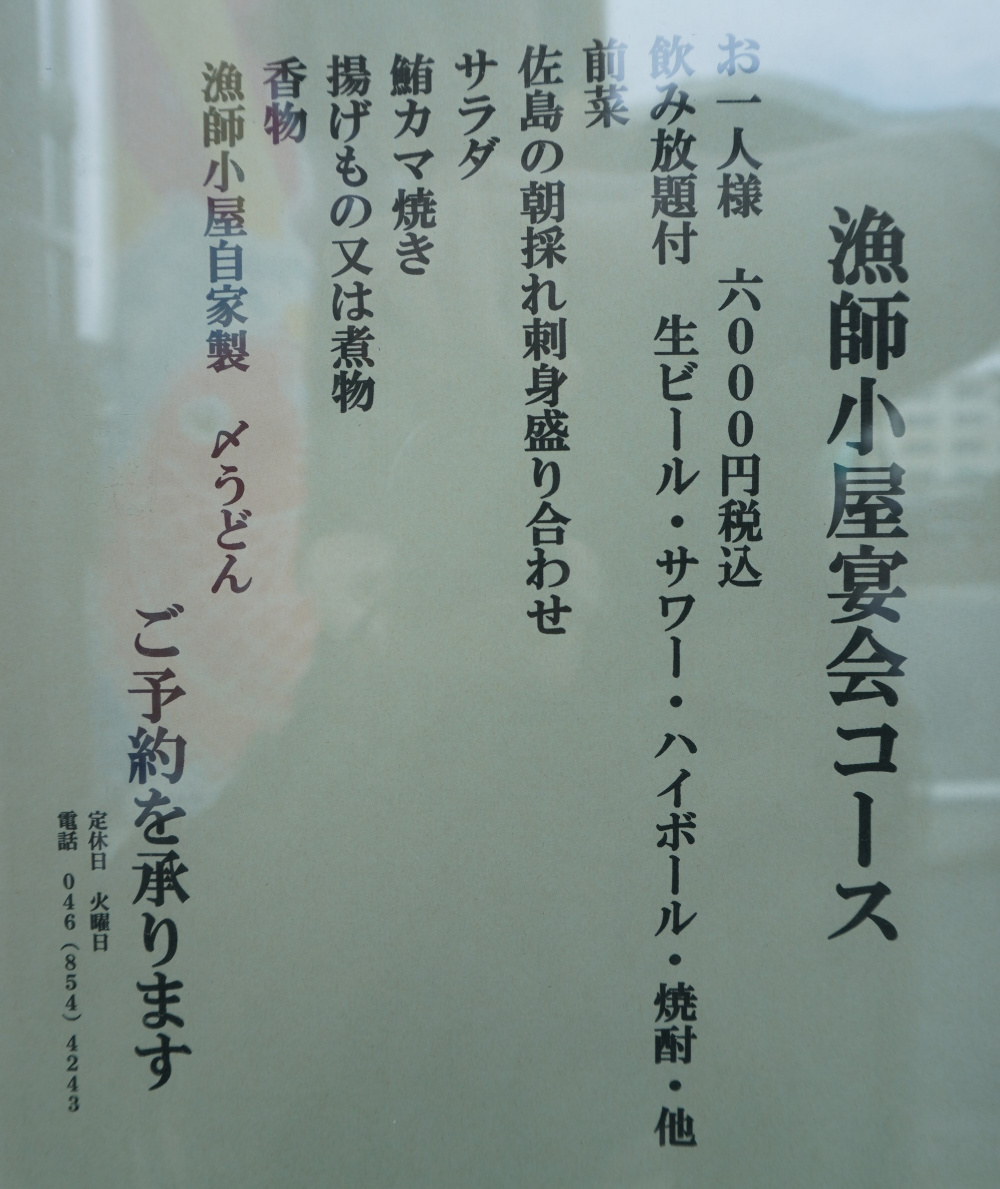 漁師小屋宴会コース
お一人様　六０００円税込
飲み放題付　生ビール・サワー・ハイボール・焼酎・他
前菜
佐島の朝採れ刺身盛り合わせ
サラダ
鮪カマ焼き
揚げもの又は煮物
香物
漁師小屋自家製　〆うどん
ご予約を承ります
定休日　火曜日
電話　046（854）4243